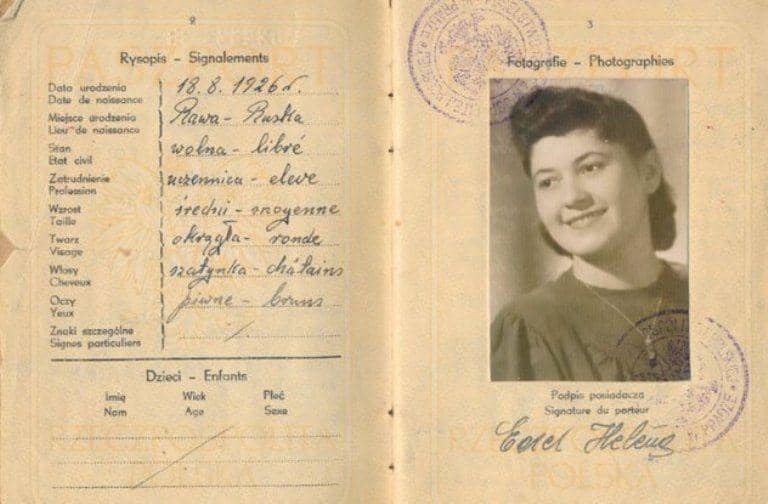 2
Rysopis - Signalements
Data urodzenia 18.8.1926 r.
Date de naissance
Miejsce urodzenia Rawa - Ruska
Lieu de naissance
Stan wolna - libré
Etat civil
Zatrudnienie uczennica - eleve
Profession
Wzrost średni - moyenne
Taille
Twarz okrągła - ronde
Visage
Włosy szatynka - châtains
Cheveux
Oczy piwne - bruns
Yeux
Znaki szczególne
Signes particuliers
Dzieci - Enfants
Imię Wiek Płeć
Nom Age Sexe
3
Fotografie - Photographies
Podpis posiadacza
Signature du porteur
Helena